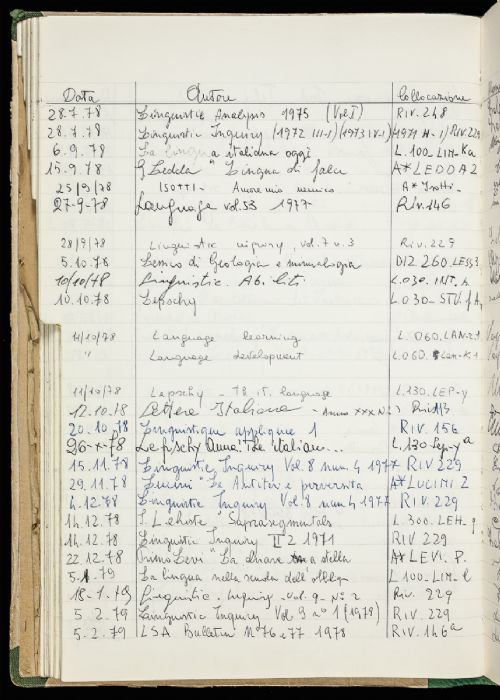 Data Autore Collocazione
28.7.78 Linguistic Analysis 1975 (Vol I) RIV. 248
28.7.78 Linguistic Inquiry (1972 III-1) (1973 IV-1) (1971 II-1) RIV. 229
6.9.78 La lingua italiana oggi L.100-LIN-Ka
15.9.78 G. Ledda " Lingua di falce A*LEDDA 2
25/9/78 ISOTTI - Amore mio nemico A* Isotti
27-9-78 Language vol. 53 1977 RIV. 146
28/9/78 Linguistic inquiry, vol. 7 n. 3 Riv. 229
5.10.78 Lessico di Geologia e mineralogia DIZ 260. LESS 3
10/10/78 Linguistic. Abiliti L.030. INT. A.
10.10.78 Lepschy L 030-
11/10/78 Language learning L. 060. LAN-
" Language development L.060.
11/10/78 Lepschy - The it. language L.130. LEP-y
12.10.78 Lettere Italiane - Anno XXX N. 2 Riv. 113
20.10.78 Linguistique appliquée 1 RIV. 156
26-X-78 Lepschy Anna: The italian... L.130-Lep-ya
15.11.78 Linguistic Inquiry Vol. 8 num. 4 1977 RIV 229
29.11.78 Lucini "Le Antitesi e perversità A*LUCINI 2
4.12.78 Linguistic Inquiry Vol. 8 num 4 1977 RIV. 229
14.12.78 I. Lehiste Suprasegmentals L. 300. LEH.
14.12.78 Linguistic Inquiry II 2 1971 RIV 229
22.12.78 Primo Levi "La chiave a stella A* LEVI. P.
5.1.79 La lingua nella scuola dell' L 100-LIN-l
18-1.79 Linguistic. Inquiry. vol. 9 - No 2 Riv. 229
5.2.79 Linguistic Inquiry Vol. 9 no 1 (1978) RIV. 229
5.2.79 LSA Bulletin No 76 e 77 1978 RIV. 146a